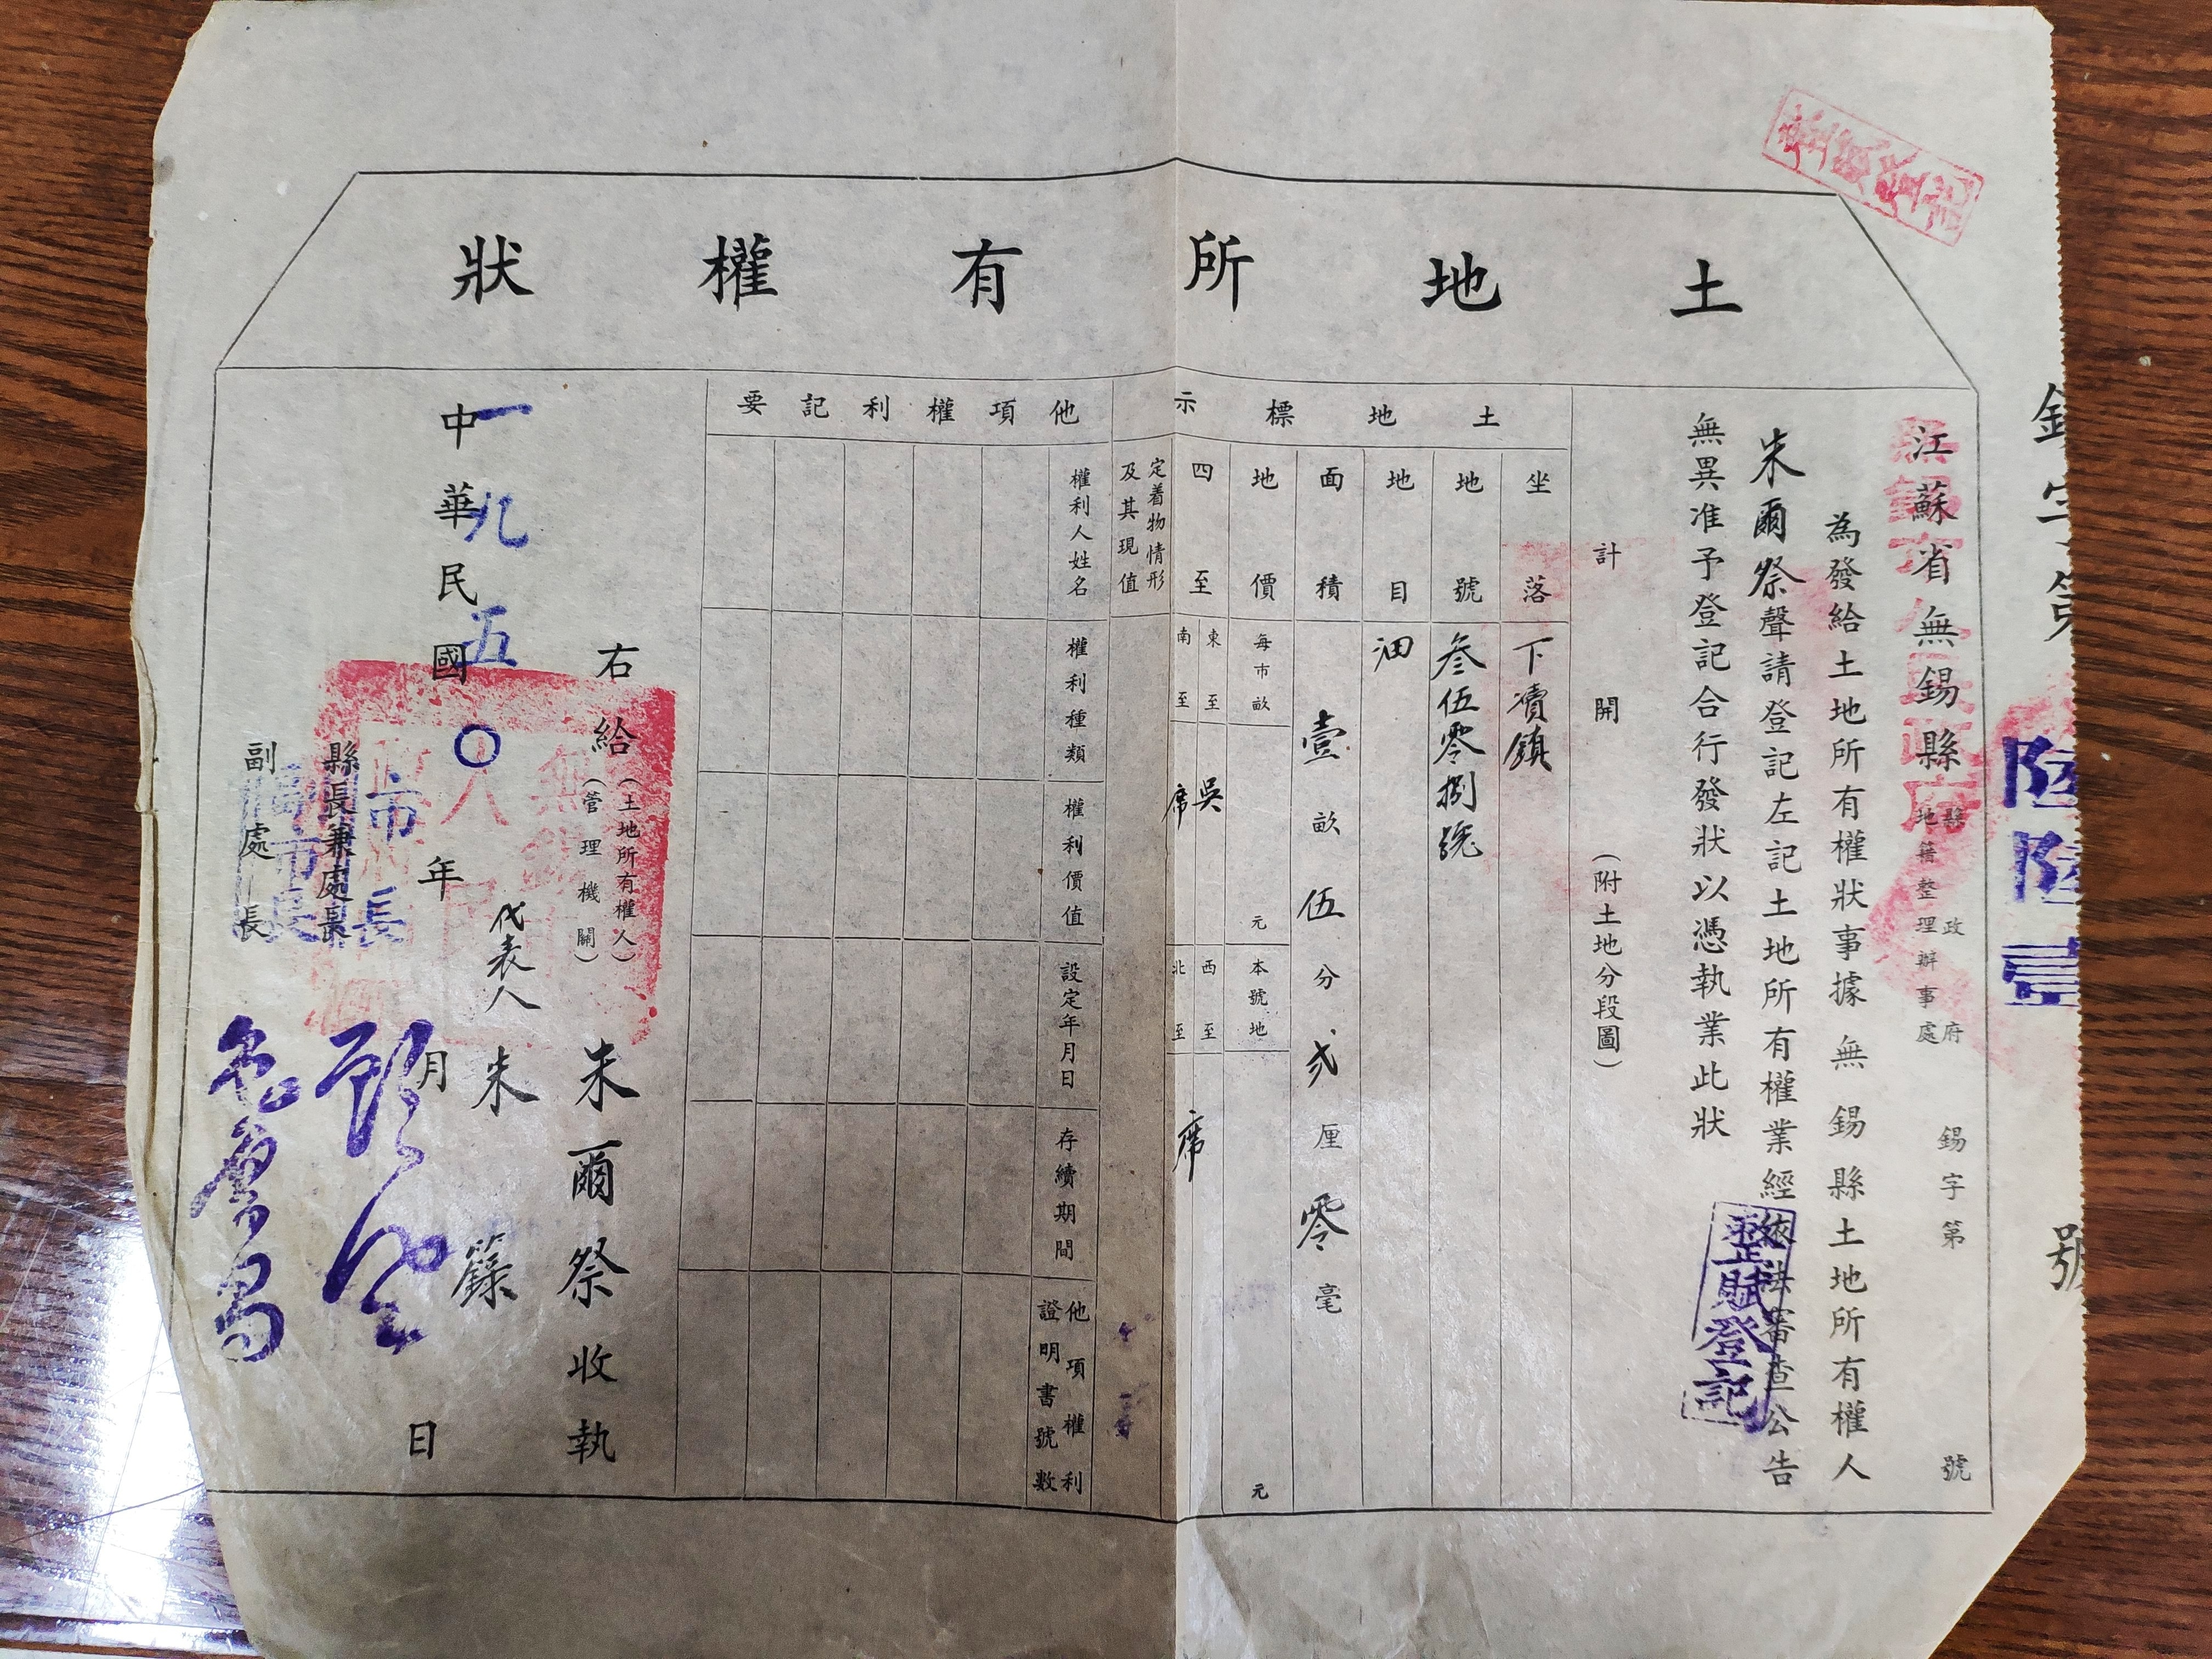 整賦登記
土地所有權狀
字第陸陸壹號
江蘇省無錫縣縣政府地籍整理辦事處
錫字第號
無錫市人民政府
為發給土地所有權狀事據無錫縣土地所有權人
朱爾祭聲請登記左記土地所有權業經依法審查公告
無異准予登記合行發狀以憑執業此狀
整賦登記
計開(附土地分段圖)
土地標示
坐落
下瀆鎮
地號
叁伍零捌號
地目
田
面積
壹畝伍分弍厘零毫
地價
每市畝
元
本號地
元
四至
東至
吳
南至
席
西至
席
北至
定着物情形及其現值
他項權利記要
權利人姓名
權利種類
權利價值
設定年月日
存續期間
他項權利證明書號數
右給(土地所有權人)(管理機關)
朱爾祭收執
代表人朱籙
中華民國年月日
一九五〇
縣長兼處長
市長
副處長
副市長